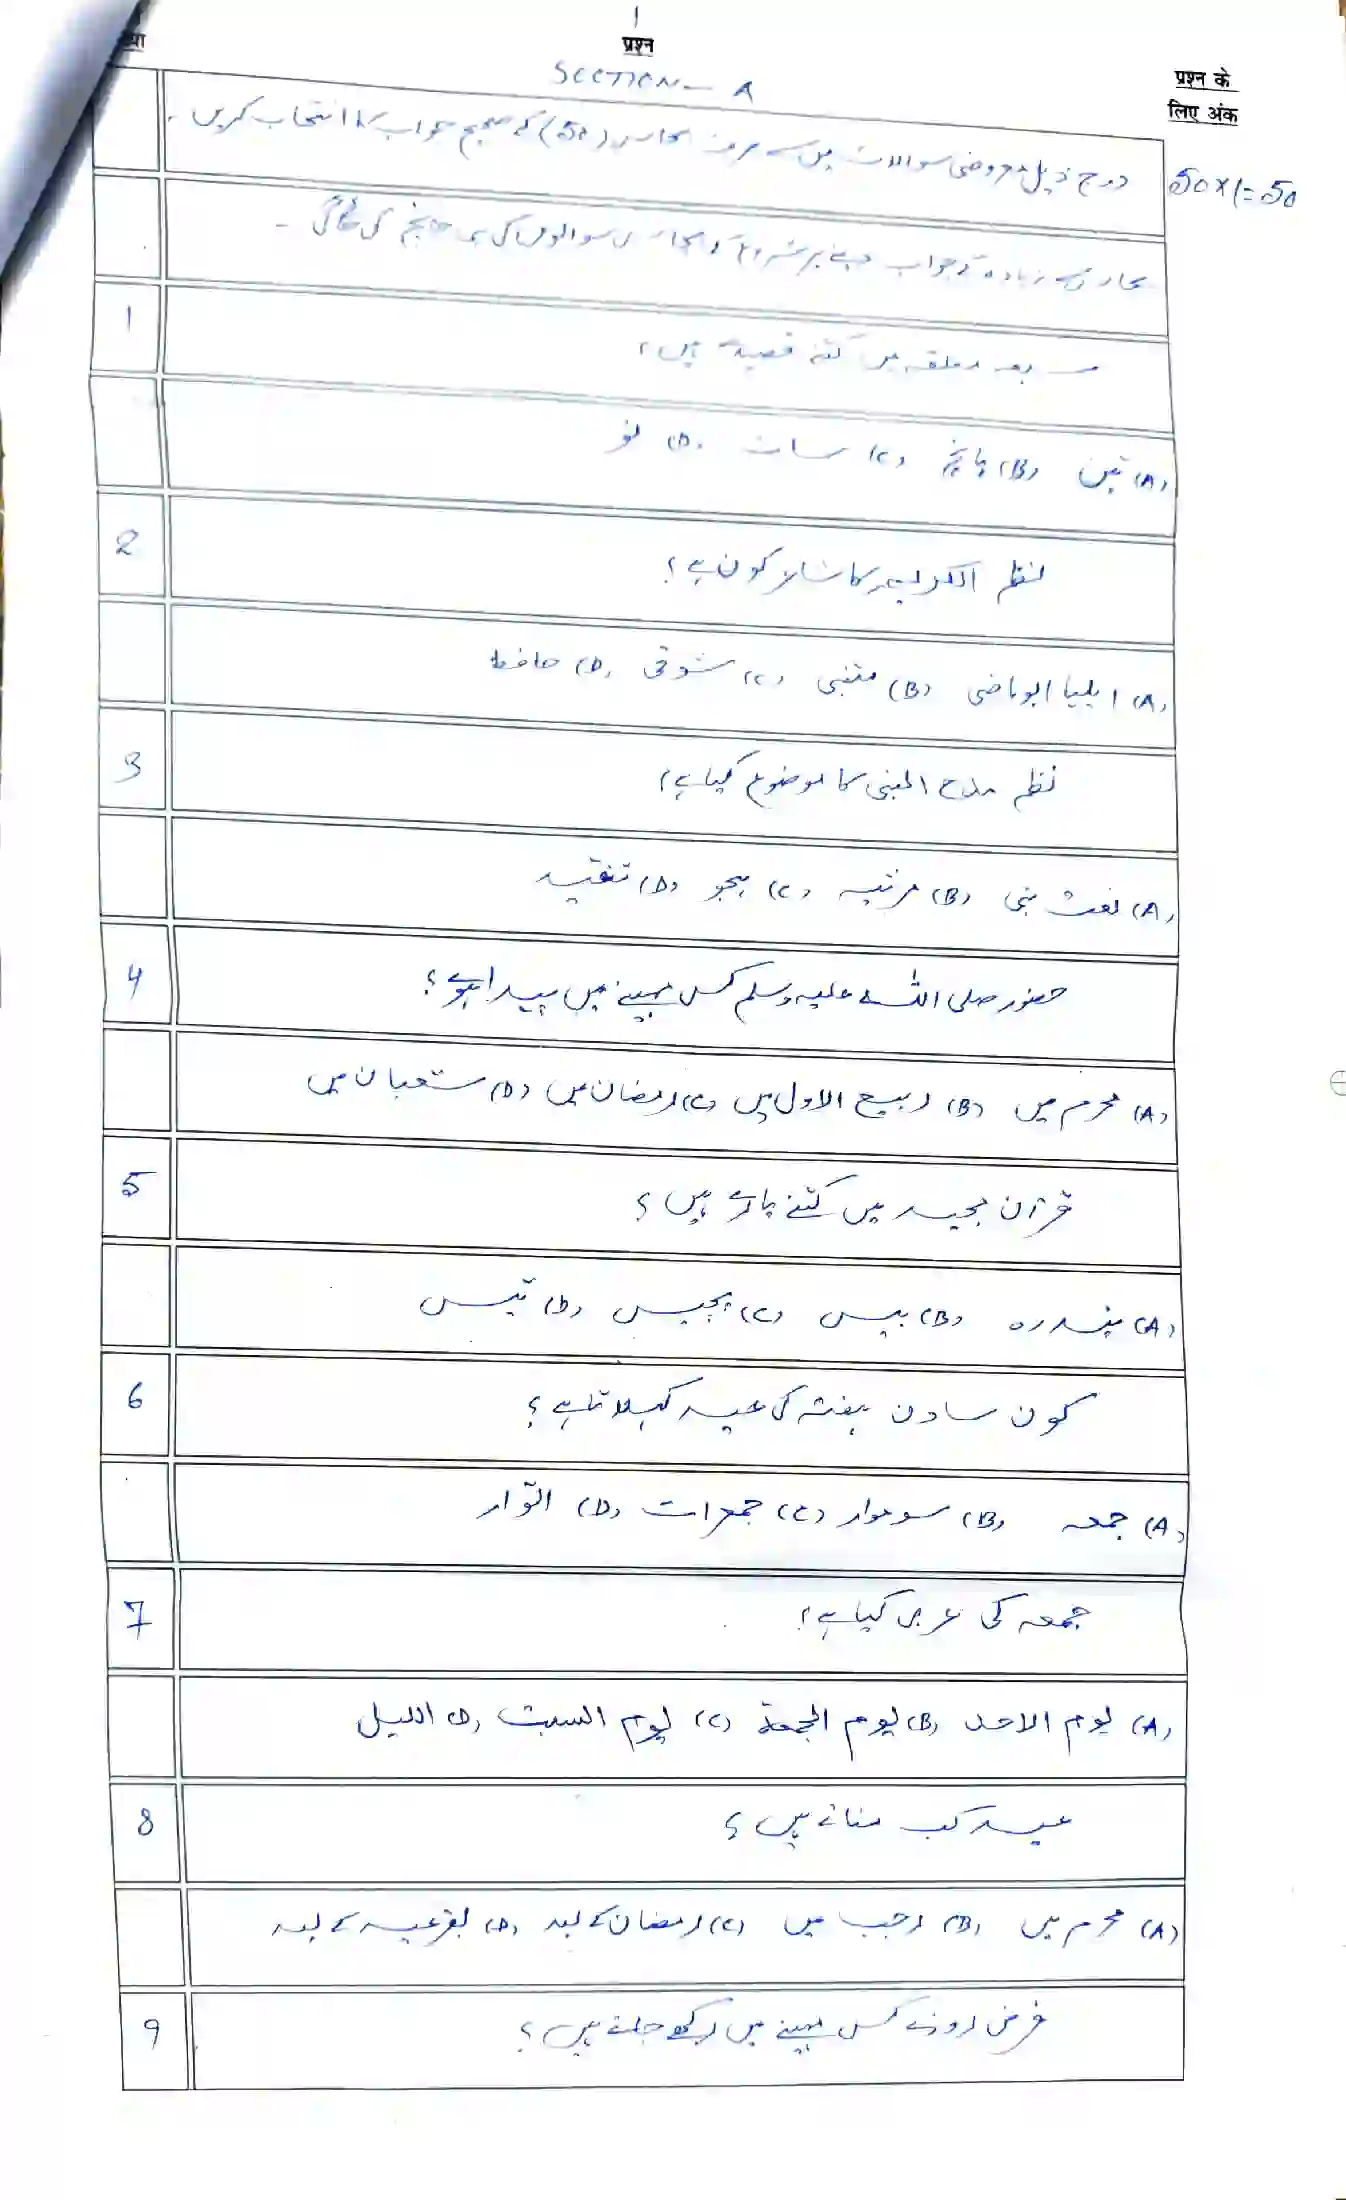 1
प्रश्न
SECTION - A
प्रश्न के
लिए अंक
درج ذیل معروضی سوالات میں سے صرف پچاس (50) کے صحیح جواب کا انتخاب کریں۔
50×1=50
پچاس سے زیادہ کے جواب دینے پر شروع کے پچاس سوالوں کی ہی جانچ کی جائیگی۔
1
سبعہ معلقہ میں کتنے قصیدے ہیں؟
(A) تین (B) پانچ (C) سات (D) نو
2
نظم کا شاعر کون ہے؟
(A) ایلیا ابو ماضی (B) متنبی (C) شوقی (D) حافظ
3
نظم مدح النبی کا موضوع کیا ہے؟
(A) نعت نبی (B) مرثیہ (C) ہجو (D) تنقید
4
حضور صلی اللہ علیہ وسلم کس مہینے میں پیدا ہوئے؟
(A) محرم میں (B) ربیع الاول میں (C) رمضان میں (D) شعبان میں
5
قرآن مجید میں کتنے پارے ہیں؟
(A) پندرہ (B) بیس (C) پچیس (D) تیس
6
کون سا دن ہفتہ کی عید کہلاتا ہے؟
(A) جمعہ (B) سوموار (C) جمعرات (D) اتوار
7
جمعہ کی عربی کیا ہے؟
(A) یوم الاحد (B) یوم الجمعة (C) یوم السبت (D) اللیل
8
عید کب مناتے ہیں؟
(A) محرم میں (B) رجب میں (C) رمضان کے بعد (D) بقرعید کے بعد
9
فرض روزے کس مہینے میں رکھے جاتے ہیں؟